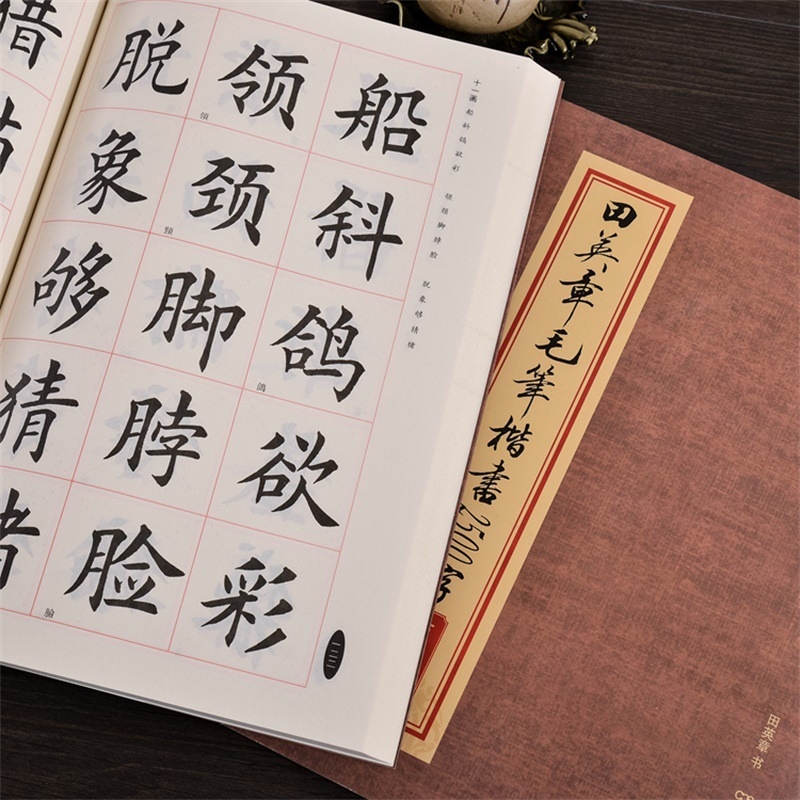 十一画 船斜鸽欲彩 领颈脚脖脸 脱象够猜猪
船斜鸽欲彩
鴿
领颈脚脖脸
領
頸
臉
脱象够猜
田英章毛筆楷書2500字
田英章 书